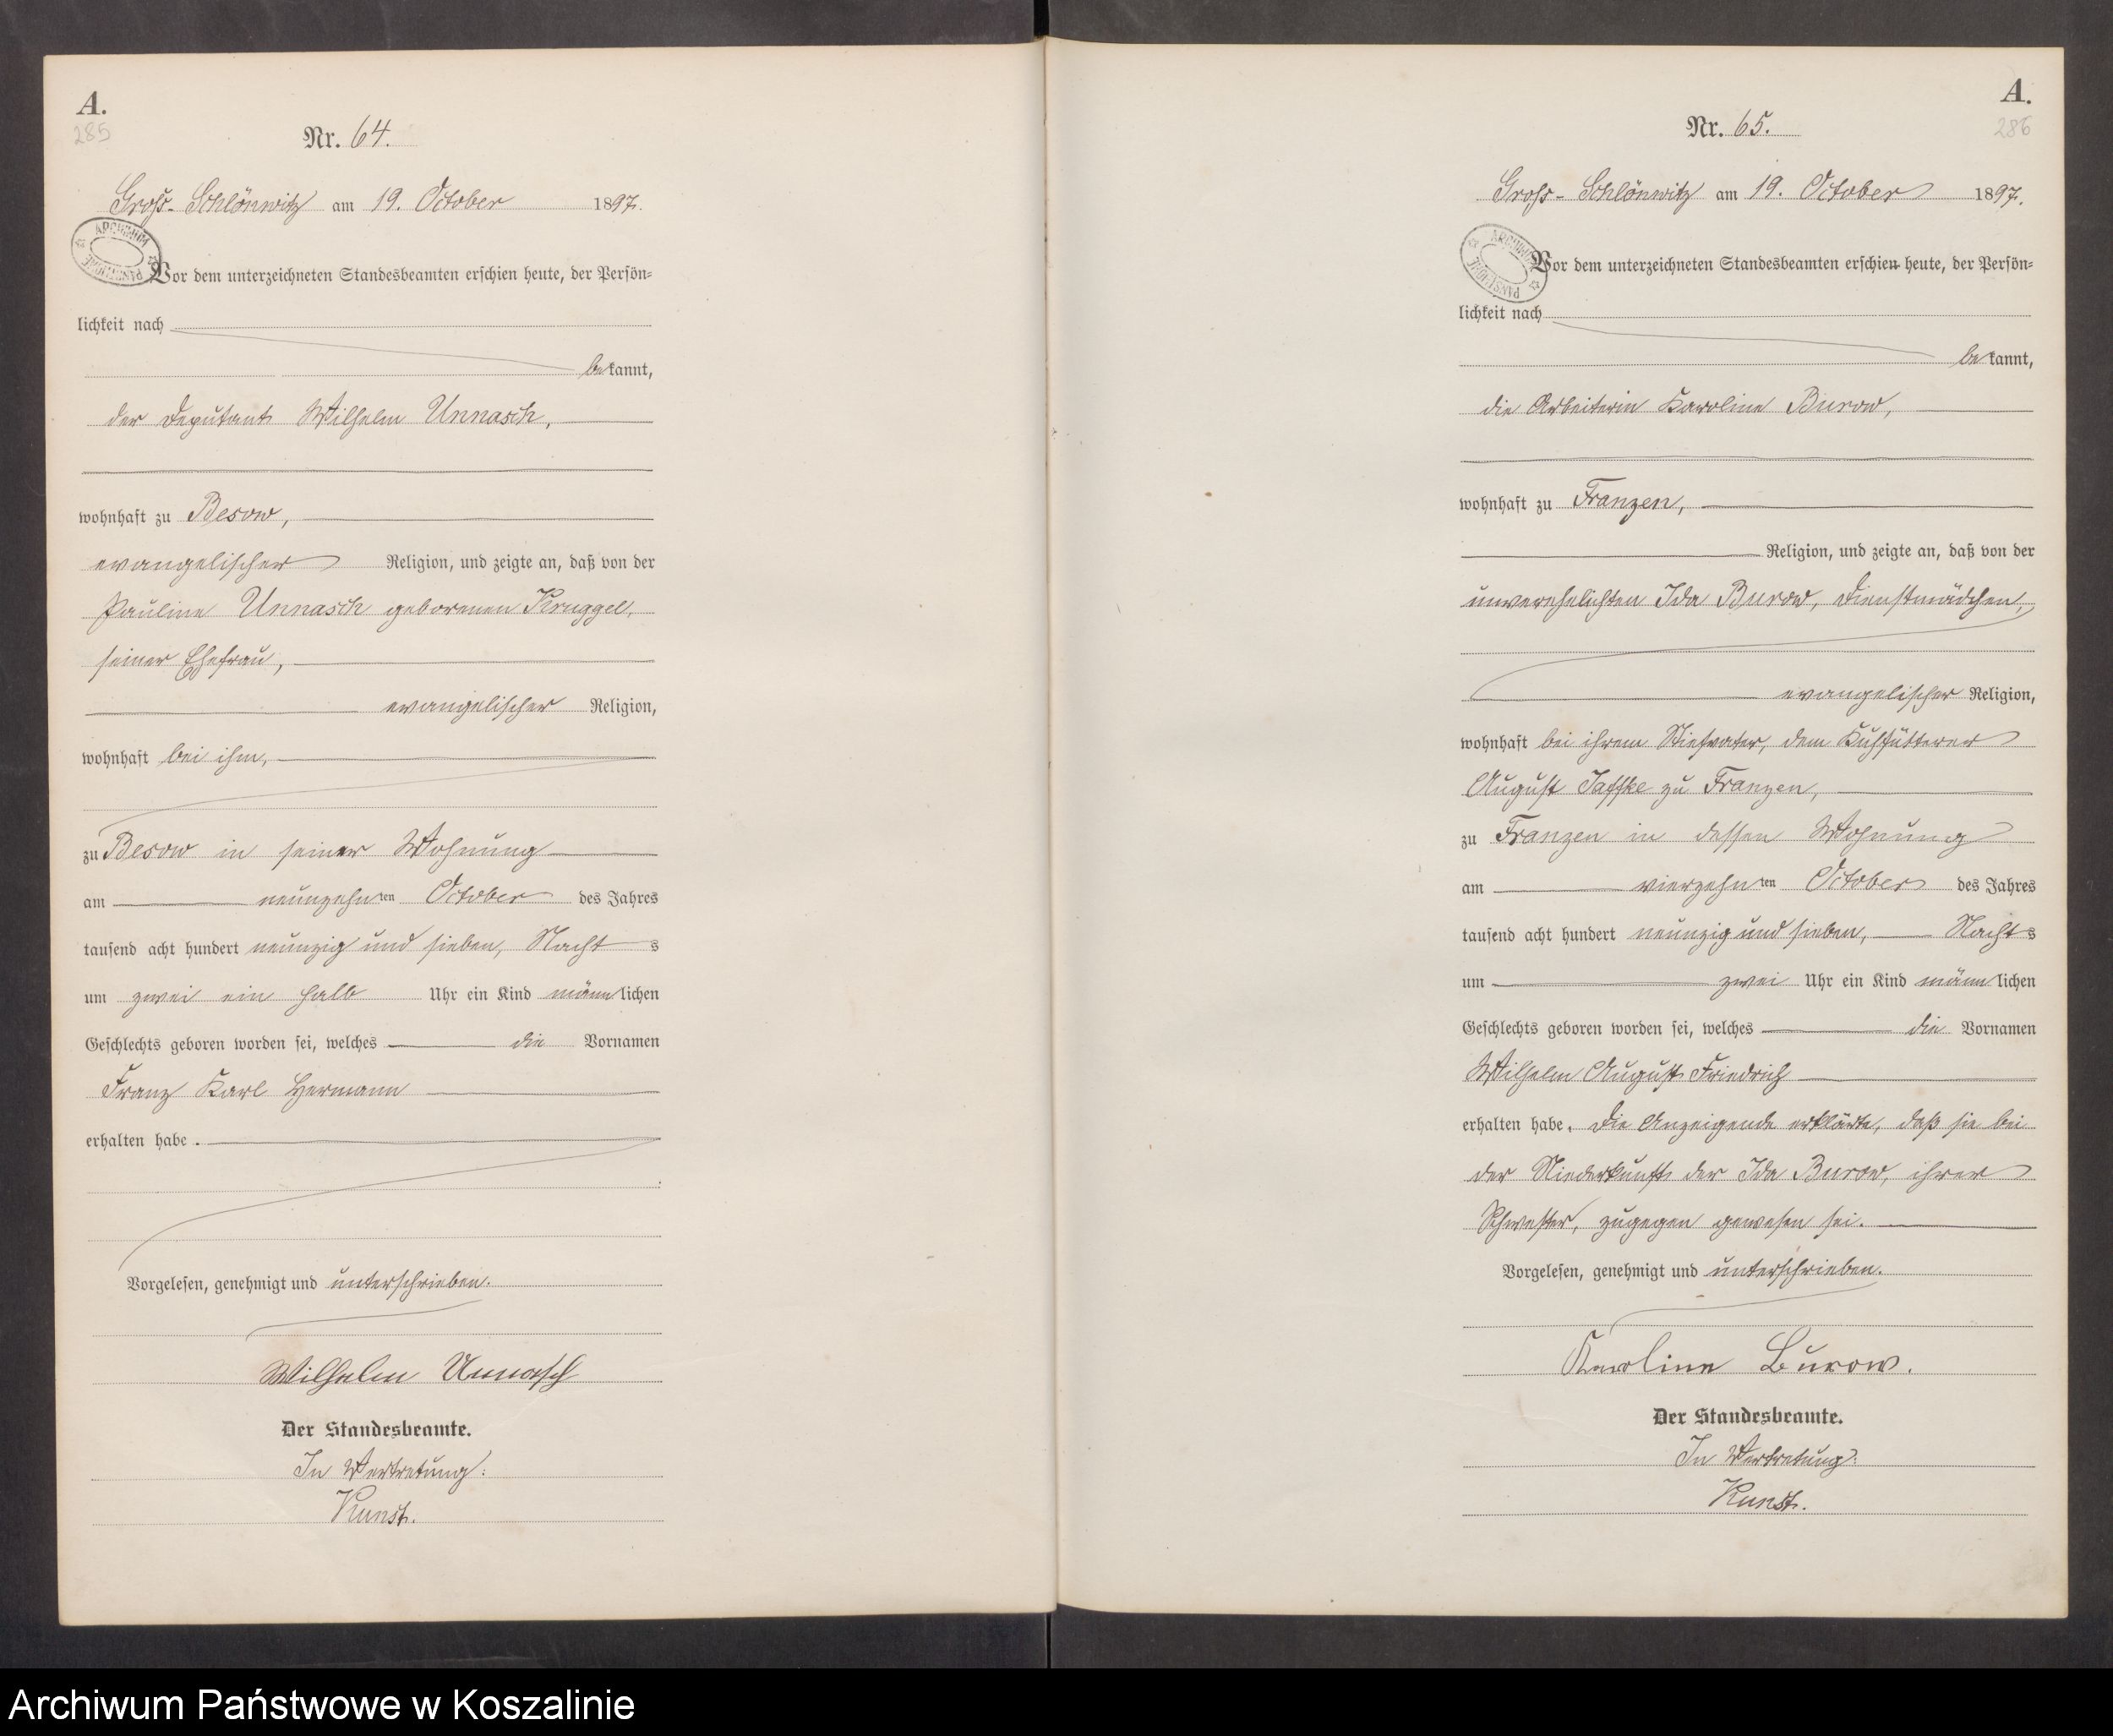 A.
285
Nr. 64.
Groß-Schlönwitz am 19. October 1897.
ARCHIWUM PAŃSTWOWE
Vor dem unterzeichneten Standesbeamten erschien heute, der Persön-
lichkeit nach
bekannt,
der Deputant Wilhelm Unnasch,
wohnhaft zu Besow,
evangelischer Religion, und zeigte an, daß von der
Pauline Unnasch geborenen Kruggel,
seiner Ehefrau,
evangelischer Religion,
wohnhaft bei ihm,
zu Besow in seiner Wohnung
am neunzehnten October des Jahres
tausend acht hundert neunzig und sieben, Nachts
um zwei ein halb Uhr ein Kind männlichen
Geschlechts geboren worden sei, welches die Vornamen
Franz Karl Hermann
erhalten habe.
Vorgelesen, genehmigt und unterschrieben.
Wilhelm Unnasch
Der Standesbeamte.
In Vertretung:
Kunst.
A.
286
Nr. 65.
Groß-Schlönwitz am 19. October 1897.
ARCHIWUM PAŃSTWOWE
Vor dem unterzeichneten Standesbeamten erschien heute, der Persön-
lichkeit nach
bekannt,
die Arbeiterin Karoline Burow,
wohnhaft zu Franzen,
Religion, und zeigte an, daß von der
unverehelichten Ida Burow, Dienstmädchen,
evangelischer Religion,
wohnhaft bei ihrem Stiefvater, dem Kuhfütterer
August Jaffke zu Franzen,
zu Franzen in dessen Wohnung
am vierzehnten October des Jahres
tausend acht hundert neunzig und sieben, Nachts
um zwei Uhr ein Kind männlichen
Geschlechts geboren worden sei, welches die Vornamen
Wilhelm August Friedrich
erhalten habe. Die Anzeigende erklärte, daß sie bei
der Niederkunft der Ida Burow, ihrer
Schwester, zugegen gewesen sei.
Vorgelesen, genehmigt und unterschrieben.
Karoline Burow.
Der Standesbeamte.
In Vertretung:
Kunst.
Archiwum Państwowe w Koszalinie